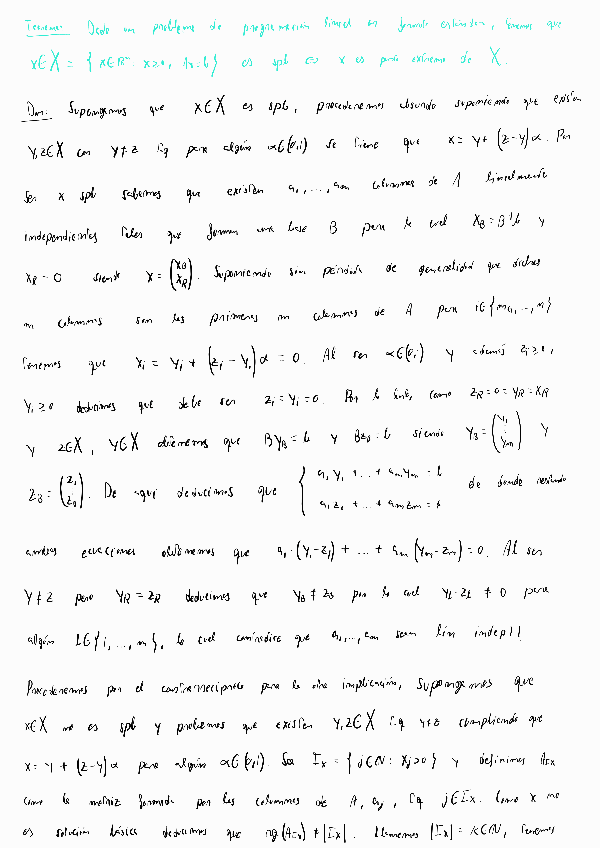 Teorema: Dado un problema de programación lineal en formato estándar, tenemos que
x∈X = {x∈ℝⁿ: x≥0, Ax=b} es spb ⇔ x es punto extremo de X.
Dem: Supongamos que x∈X es spb, procederemos absurdo suponiendo que existen
y,z∈X con y≠z tq para algún α∈(0,1) se tiene que x = y + (z-y)α. Por
ser x spb sabemos que existen a₁,...,aₘ columnas de A linealmente
independientes tales que forman una base B para la cual x_B = B⁻¹b y
x_R = 0 siendo x = (x_B x_R). Suponiendo sin pérdida de generalidad que dichas
m columnas son las primeras m columnas de A para i∈{m+1,...,n}
tenemos que xᵢ = yᵢ + (zᵢ - yᵢ)α = 0. Al ser α∈(0,1) y además zᵢ≥0,
yᵢ≥0 deducimos que debe ser zᵢ = yᵢ = 0. Por lo tanto, como z_R = 0 = y_R = x_R
y z∈X, y∈X obtenemos que By_B = b y Bz_B = b siendo y_B = (y₁ ⋮ yₘ) y
z_B = (z₁ ⋮ zₘ). De aquí deducimos que { a₁y₁ + ... + aₘyₘ = b a₁z₁ + ... + aₘzₘ = b de donde restando
ambas ecuaciones obtenemos que a₁·(y₁-z₁) + ... + aₘ(yₘ-zₘ) = 0. Al ser
y≠z pero y_R = z_R deducimos que y_B ≠ z_B por lo cual y_L - z_L ≠ 0 para
algún L∈{1,...,m}, lo cual contradice que a₁,...,aₘ sean lin indep!!
Procederemos por el contrarrecíproco para la otra implicación, supongamos que
x∈X no es spb y probemos que existen y,z∈X tq y≠z cumpliendo que
x = y + (z-y)α para algún α∈(0,1). Sea Iₓ = {j∈ℕ: xⱼ>0} y definimos A_Ix
como la matriz formada por las columnas de A, aⱼ, tq j∈Iₓ. Como x no
es solución básica deducimos que rg(A_Ix) ≠ |Iₓ|. Llamemos |Iₓ| = k∈ℕ, tenemos